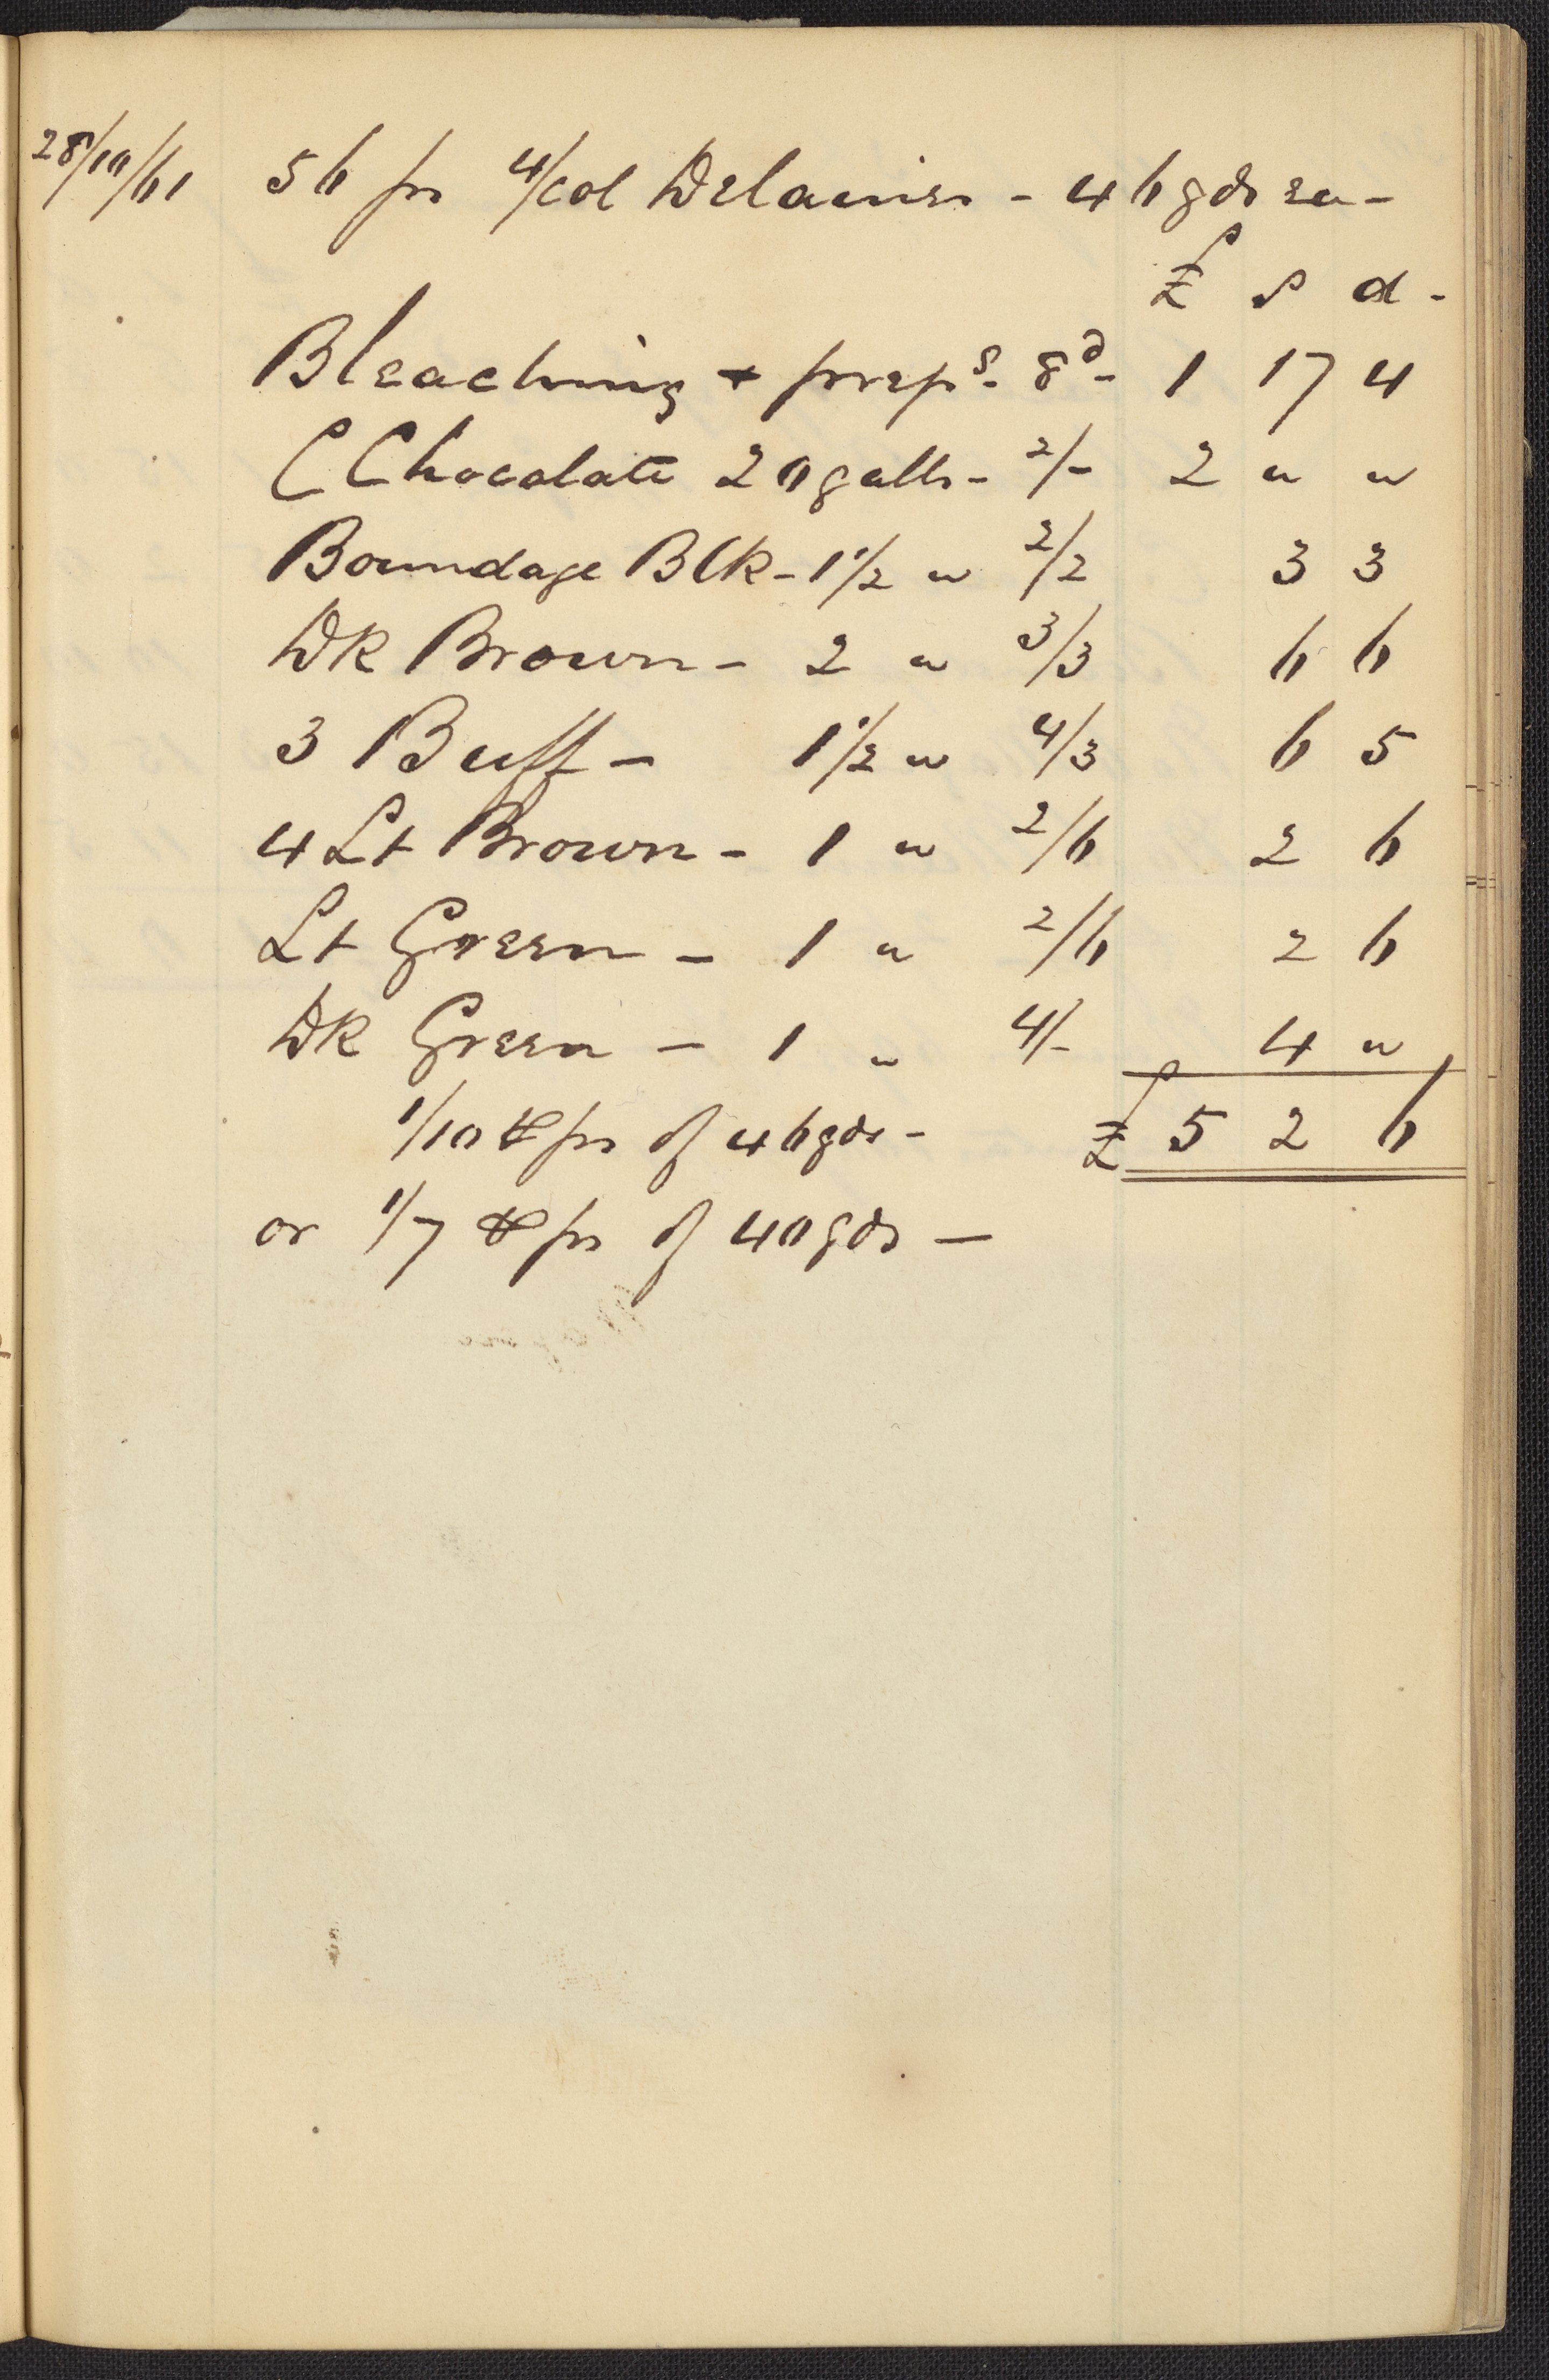 28/10/61 56 ps 4/col Delaines - 46 yds ea -
£ s d -
Bleaching & prepg - 8d - 1 17 4
C Chocolate 20 galls - 2/- 2 " "
Boundage Blk - 1 1/2 " 2/2 3 3
Dk Brown - 2 " 3/3 6 6
3 Buff - 1 1/2 " 4/3 6 5
4 Lt Brown - 1 " 2/6 2 6
Lt Green - 1 " 2/6 2 6
Dk Green - 1 " 4/- 4 "
1/10 ⅌ ps of 46 yds - £ 5 2 6
or 1/7 ⅌ ps of 40 yds -